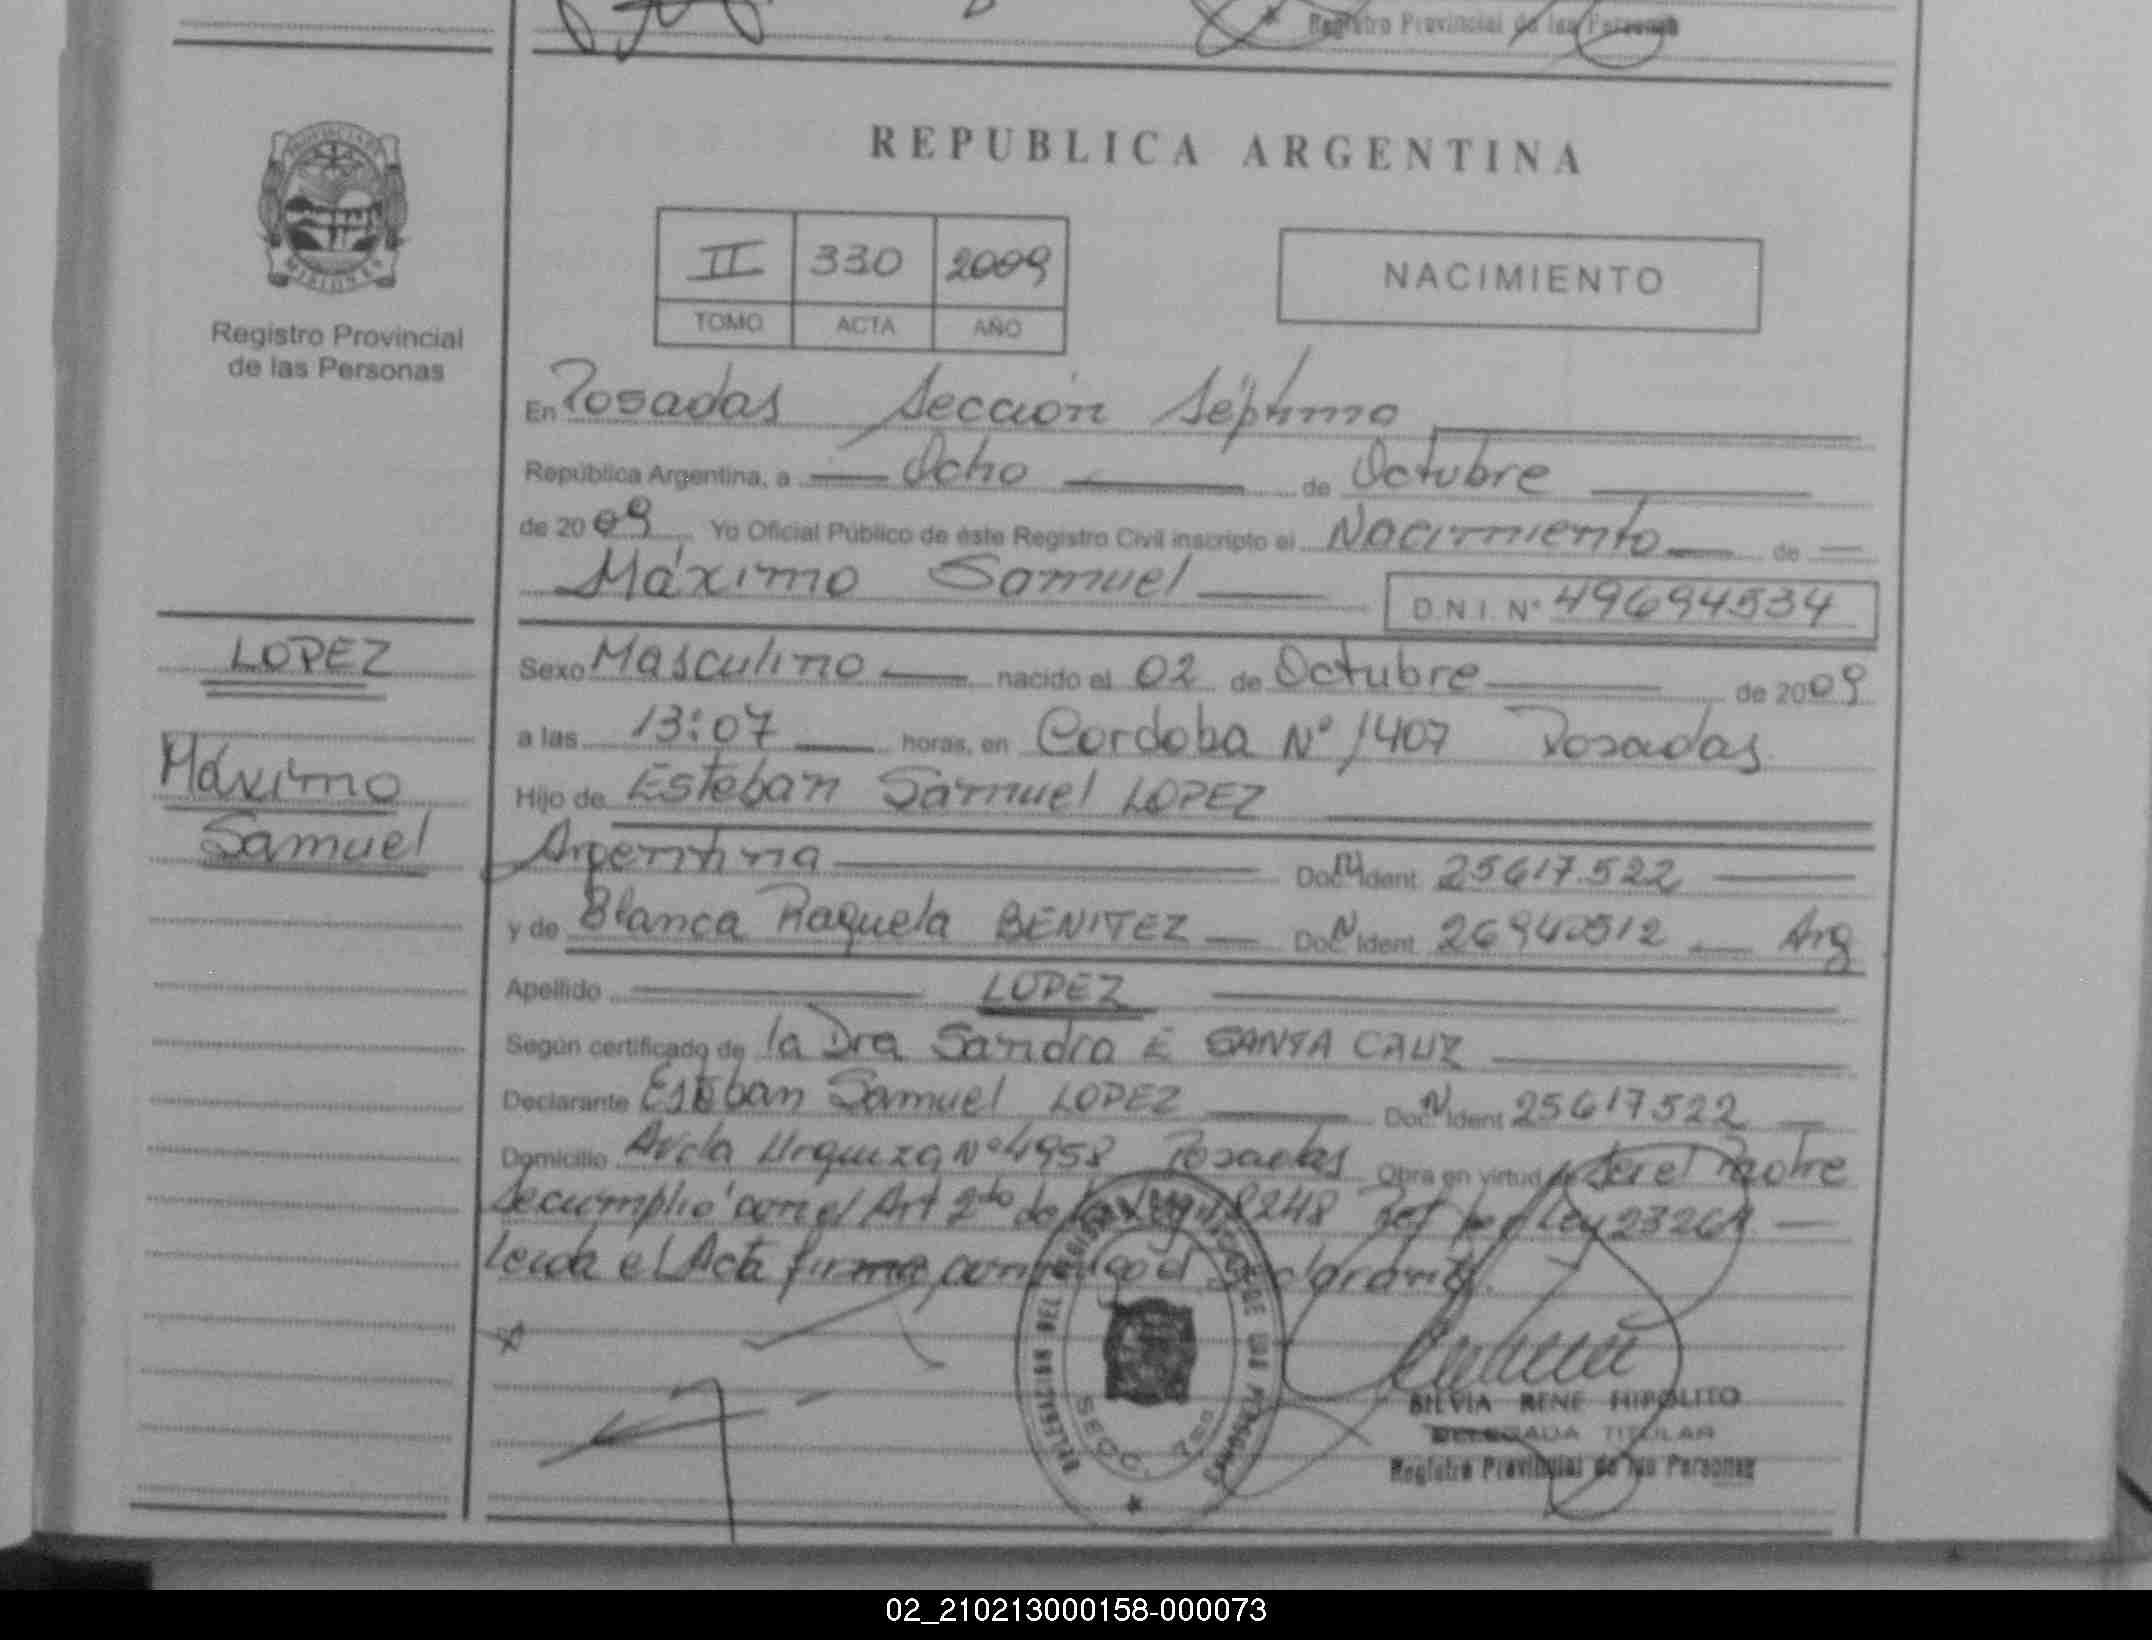 Registro Provincial de las Personas
PROVINCIA DE
MISIONES
Registro Provincial
de las Personas
REPUBLICA ARGENTINA
II 330 2009
TOMO ACTA AÑO
NACIMIENTO
En Posadas Sección Séptima
República Argentina, a Ocho de Octubre
de 2009 Yo Oficial Público de éste Registro Civil inscripto el Nacimiento de
Máximo Samuel D.N.I. Nº 49694534
LOPEZ
Máximo
Samuel
Sexo Masculino nacido el 02 de Octubre de 2009
a las 13:07 horas, en Cordoba Nº 1407 Posadas
Hijo de Esteban Samuel LOPEZ
Argentina Doc. N Ident. 25617.522
y de Blanca Raquela BENITEZ Doc. N Ident. 26940512 Arg
Apellido LOPEZ
Según certificado de la Dra Sandra E SANTA CRUZ
Declarante Esteban Samuel LOPEZ Doc. N Ident 25617522
Domicilio Avda Urquiza Nº 4958 Posadas Obra en virtud de Ser el Padre
Se cumplió con el Art 2do de la Ley 18248 Ref por Ley 23264
Leída el Acta firma conmigo el declarante.
DELEGACION DEL REGISTRO PROVINCIAL DE LAS PERSONAS
SECC. 7ma
SILVIA RENE HIPOLITO
DELEGADA TITULAR
Registro Provincial de las Personas
02_210213000158-000073